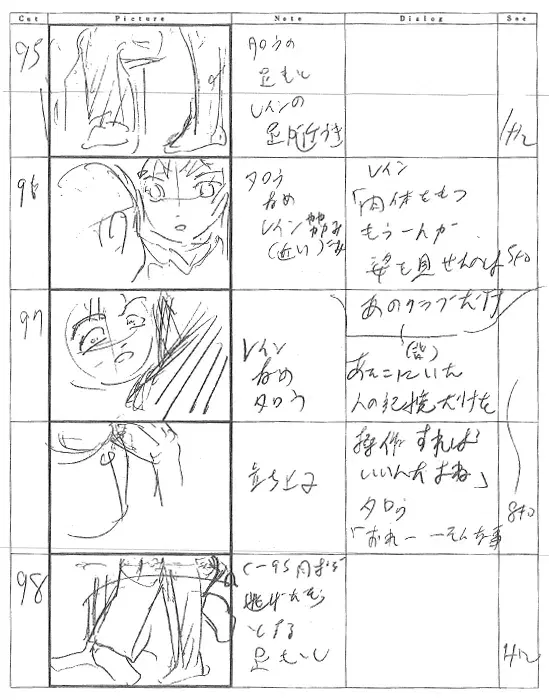 Cut Picture Note Dialog Sec
95
タロウの
足もと
レインの
足近づき
1+12
96
タロウ
なめ
レイン
(近い)
レイン
「肉体をもつ
もう一人が
姿を見せんのは
5+0
97
あのクラブだけ
レイン
なめ
タロウ
あそこにいた
人の記憶だけを
立ち上る
操作すれば
いいんだよね」
タロウ
「おれ一
8+0
98
C-95同ポジ
逃げだそう
とする
足もと
4+12